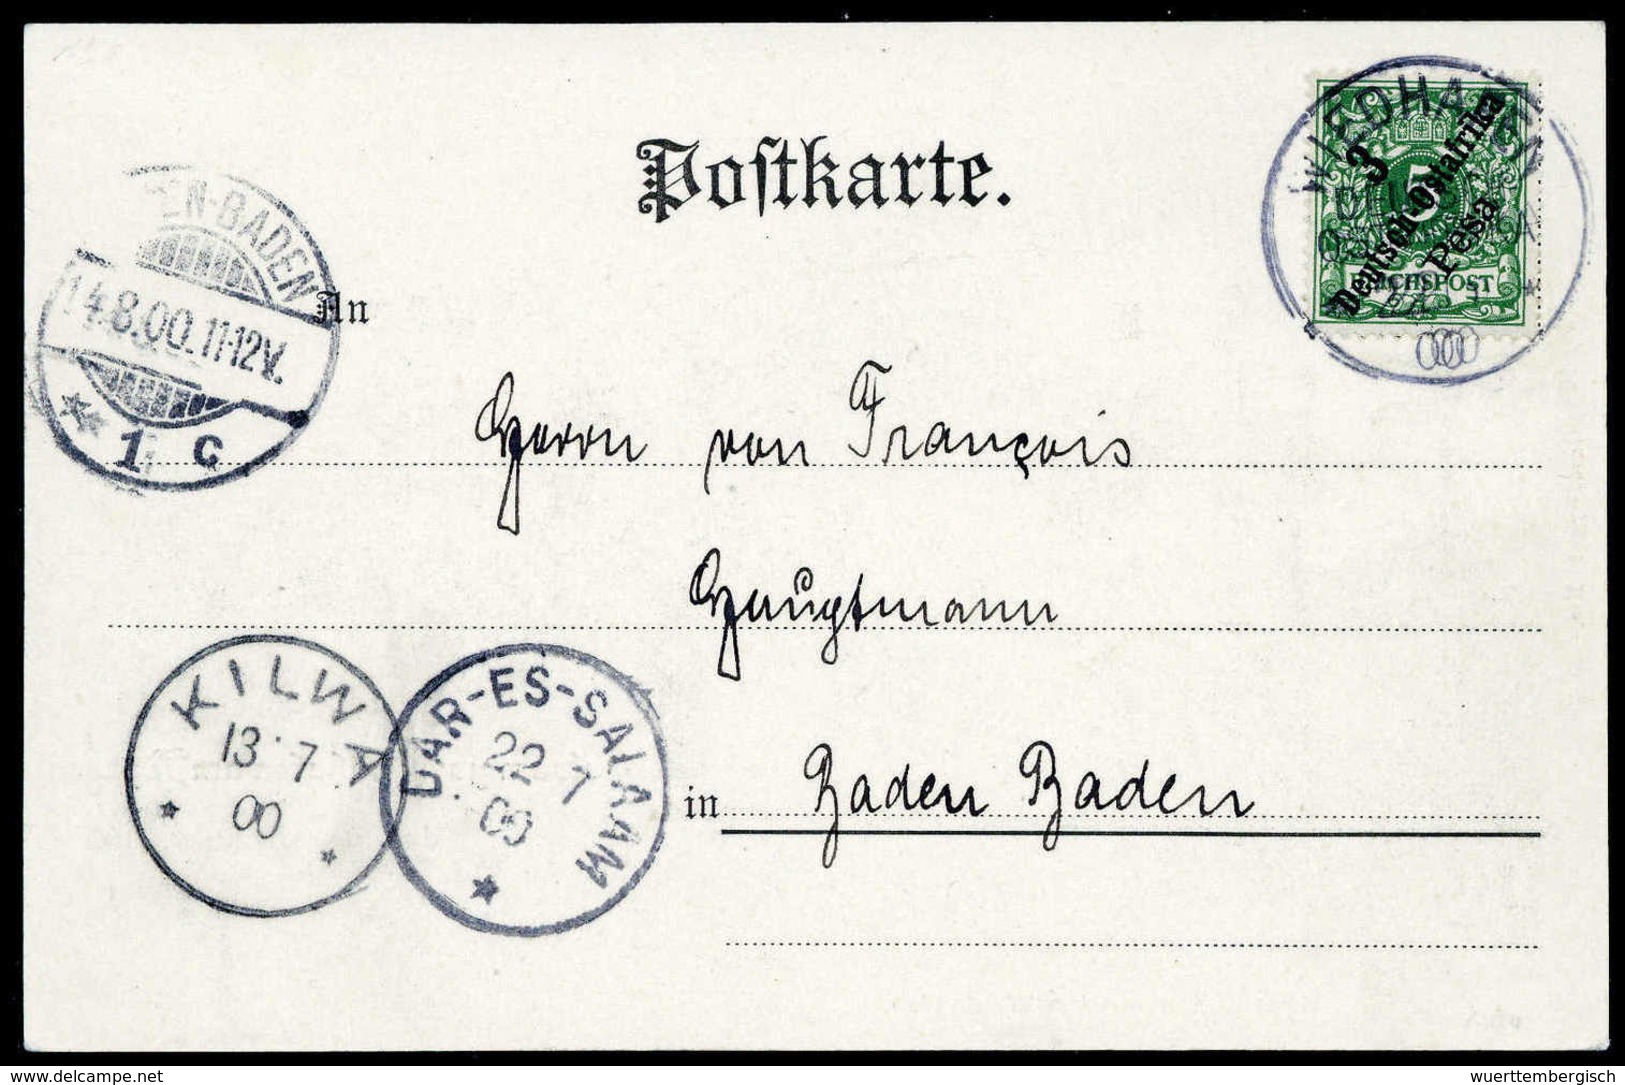 Postkarte.
WIEDHAFEN
3
Deutsch-Ostafrika
Pesa
5
REICHSPOST
EN-BADEN
14.8.00.11-12V.
1 c
An
Herrn von François
Hauptmann
in Baden Baden
KILWA
13 7
00
DAR-ES-SALAAM
22 7
00
delcampe.net
wuerttembergisch